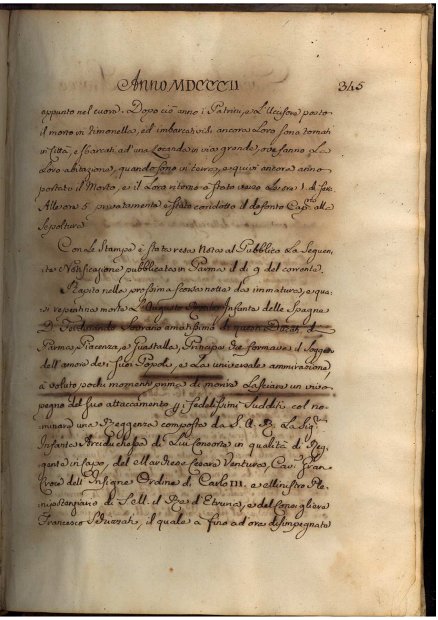 Anno MDCCCII 345
appunto nel cuore. Dopo ciò anno i Patrini, e l'Uccisore posto
il morto in timonella, ed imbarcatisi ancora loro sono tornati
in Città, e sbarcati ad una Locanda in via grande, ove fanno la
loro abitazione, quando sono in terra, e quivi ancora anno
portato il Morto, e il loro ritorno è stato verso le ore 1. di sera
Alle ore 5 privatamente è stato condotto il defonto Cap.no alla
Sepoltura
Con le Stampe è stata resa nota al Pubblico la seguen-
te Notificazione pubblicata in Parma il dì 9 del corrente.
Rapito nella prossima scorsa notte da immatura, e qua-
si repentina morte l'Augusto Infante delle Spagne
D. Ferdinando Sovrano amatissimo di questi Ducati di
Parma, Piacenza, e Guastalla, Principe che formava il Soggetto
dell'amore de' suoi Popoli, e la universale ammirazione
à voluto pochi momenti prima di morire lasciare un vivo
pegno del suo attaccamento p i fedelissimi Sudditi col no-
minare una Reggenza composta da S. A. R. la Sig.ra
Infanta Arciduchessa di Lui Consorte in qualità di Reg-
gente in capo, del Marchese Cesare Ventura, Cav. Gran
Croce dell'Insigne Ordine di Carlo III. e Ministro Ple-
nipotenziario di S. M. il Re d'Etruria, e del Consigliere
Francesco Schizzati, il quale a fino ad ora disimpegnato